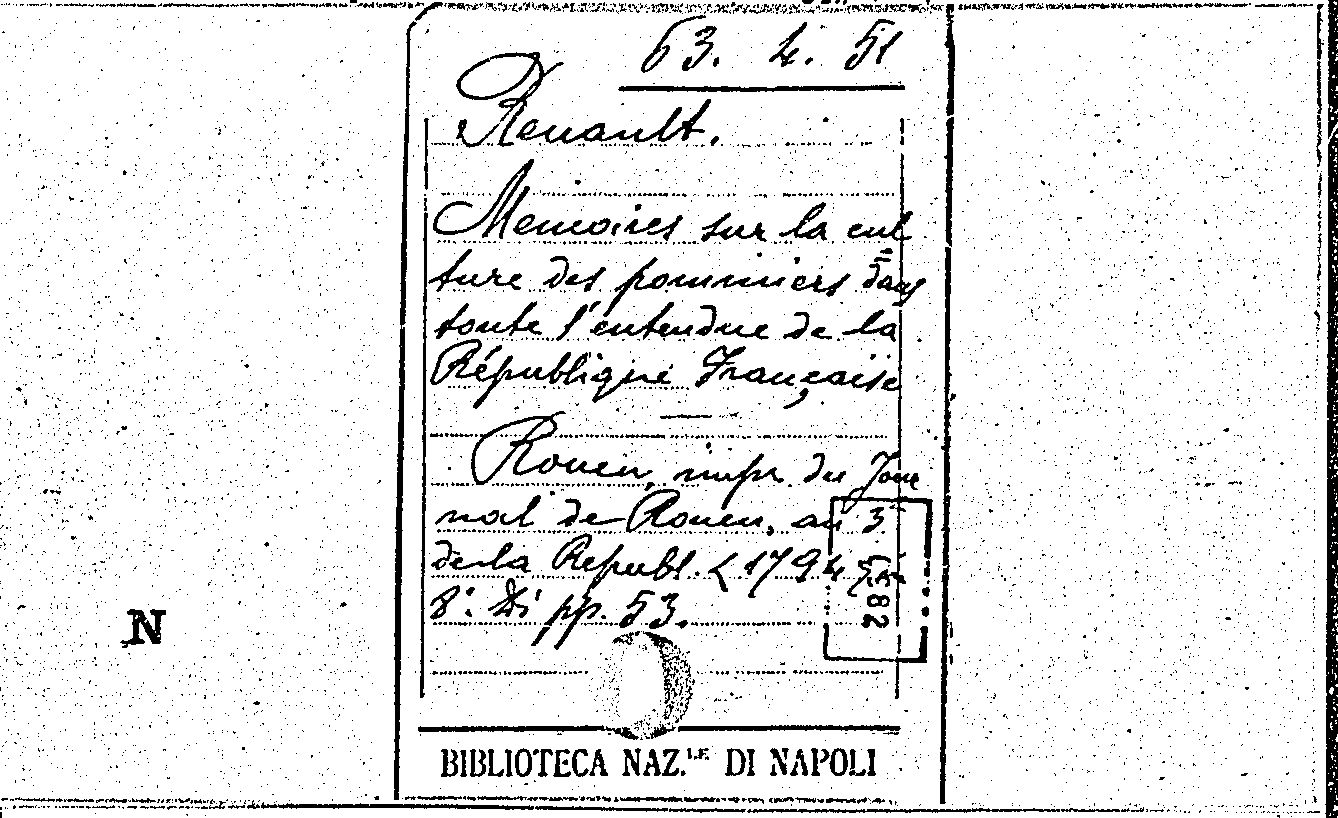 63. 4. 51
Renault.
Memoires sur la cul
ture des pommiers dans
toute l'entendue de la
République Française
Rouen, impr du Jour
nal de Rouen, an 3
de la Republ. < 1794
8.° Di pp. 53.
82
N
BIBLIOTECA NAZ.LE DI NAPOLI